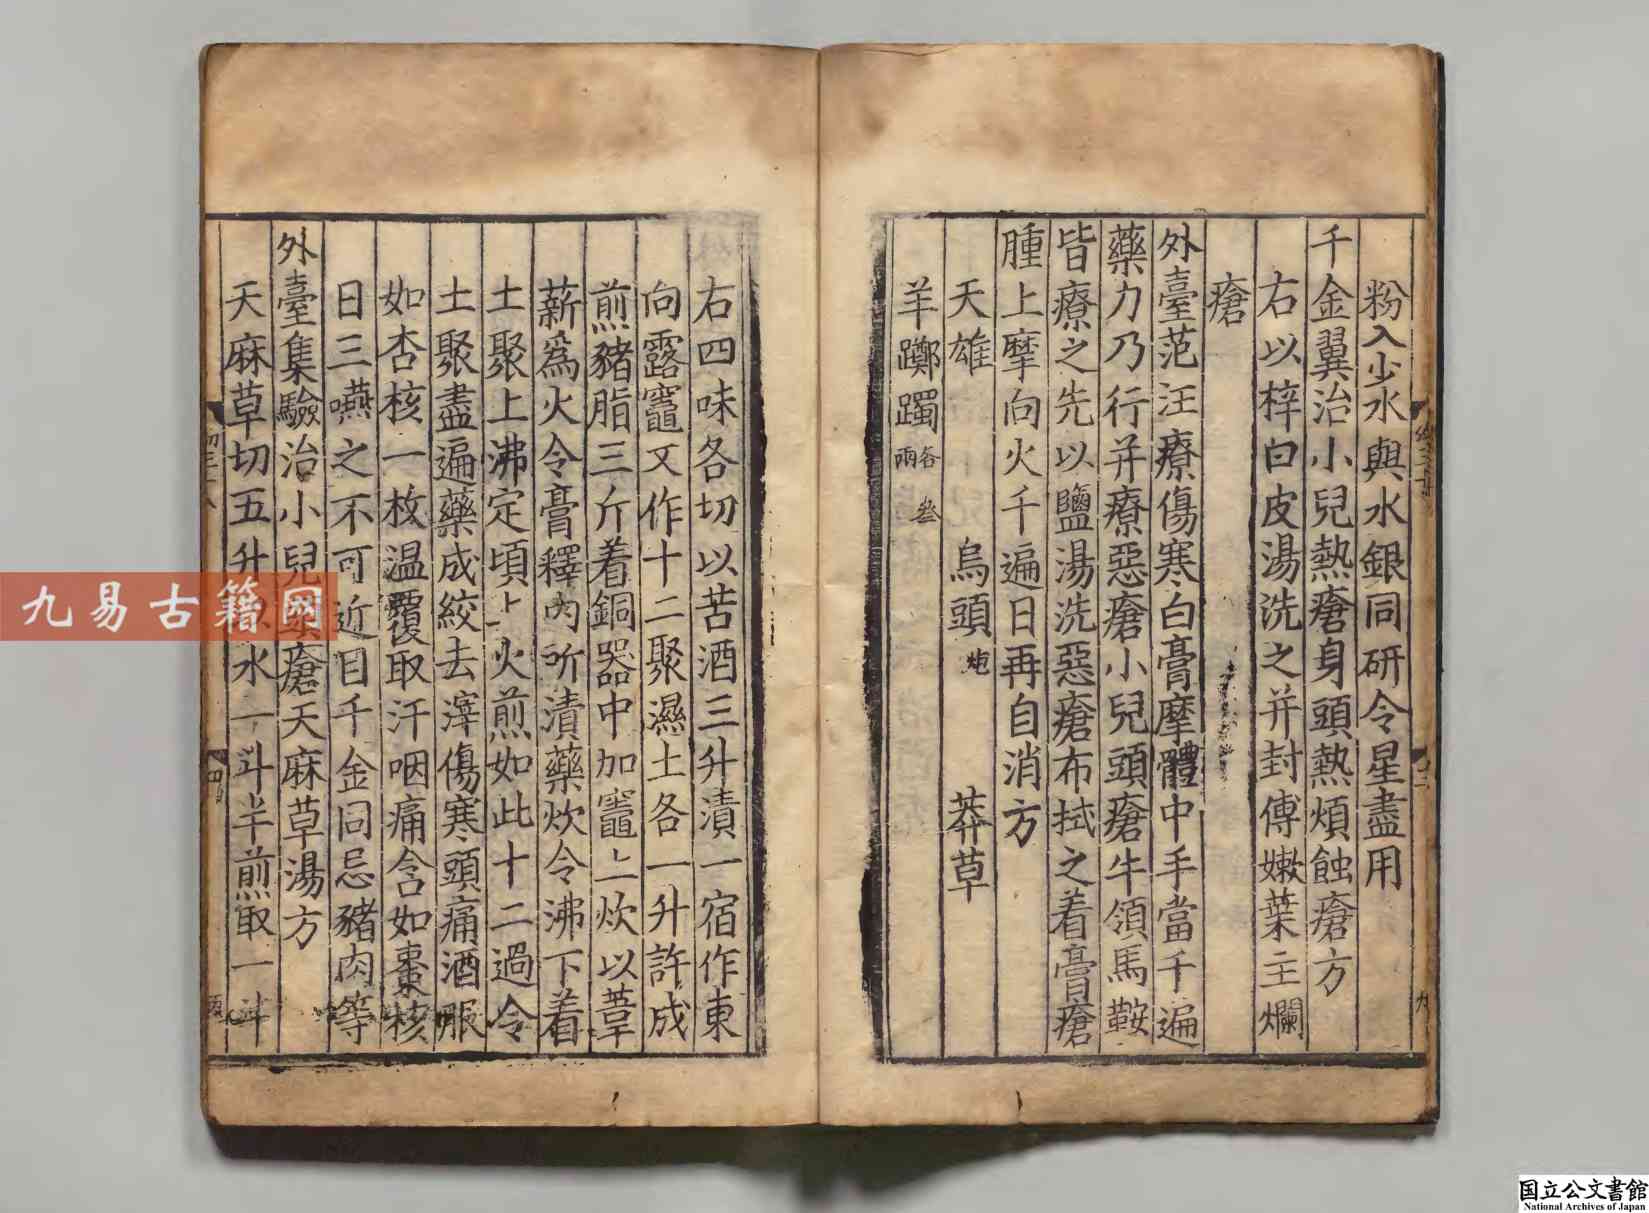 粉入少水與水銀同研令星盡用
千金翼治小兒熱瘡身頭熱煩蝕瘡方
右以梓白皮湯洗之并封傅嫩葉主爛
瘡
外臺范汪療傷寒白膏摩體中手當千遍
藥力乃行并療惡瘡小兒頭瘡牛領馬鞍
皆療之先以鹽湯洗惡瘡布拭之着膏瘡
腫上摩向火千遍日再自消方
天雄 烏頭炮 莽草
羊躑躅各叁兩
右四味各切以苦酒三升漬一宿作東
向露竈又作十二聚濕土各一升許成
煎豬脂三斤着銅器中加竈上炊以葦
薪為火令膏釋內所漬藥炊令沸下着
土聚上沸定頃上火煎如此十二過令
土聚盡遍藥成絞去滓傷寒頭痛酒服
如杏核一枚温覆取汗咽痛含如棗核
日三嚥之不可近目千金同忌豬肉等
外臺集驗治小兒瘡天麻草湯方
天麻草切五升水一斗半煎取一斗
九易古籍网
国立公文書館
National Archives of Japan